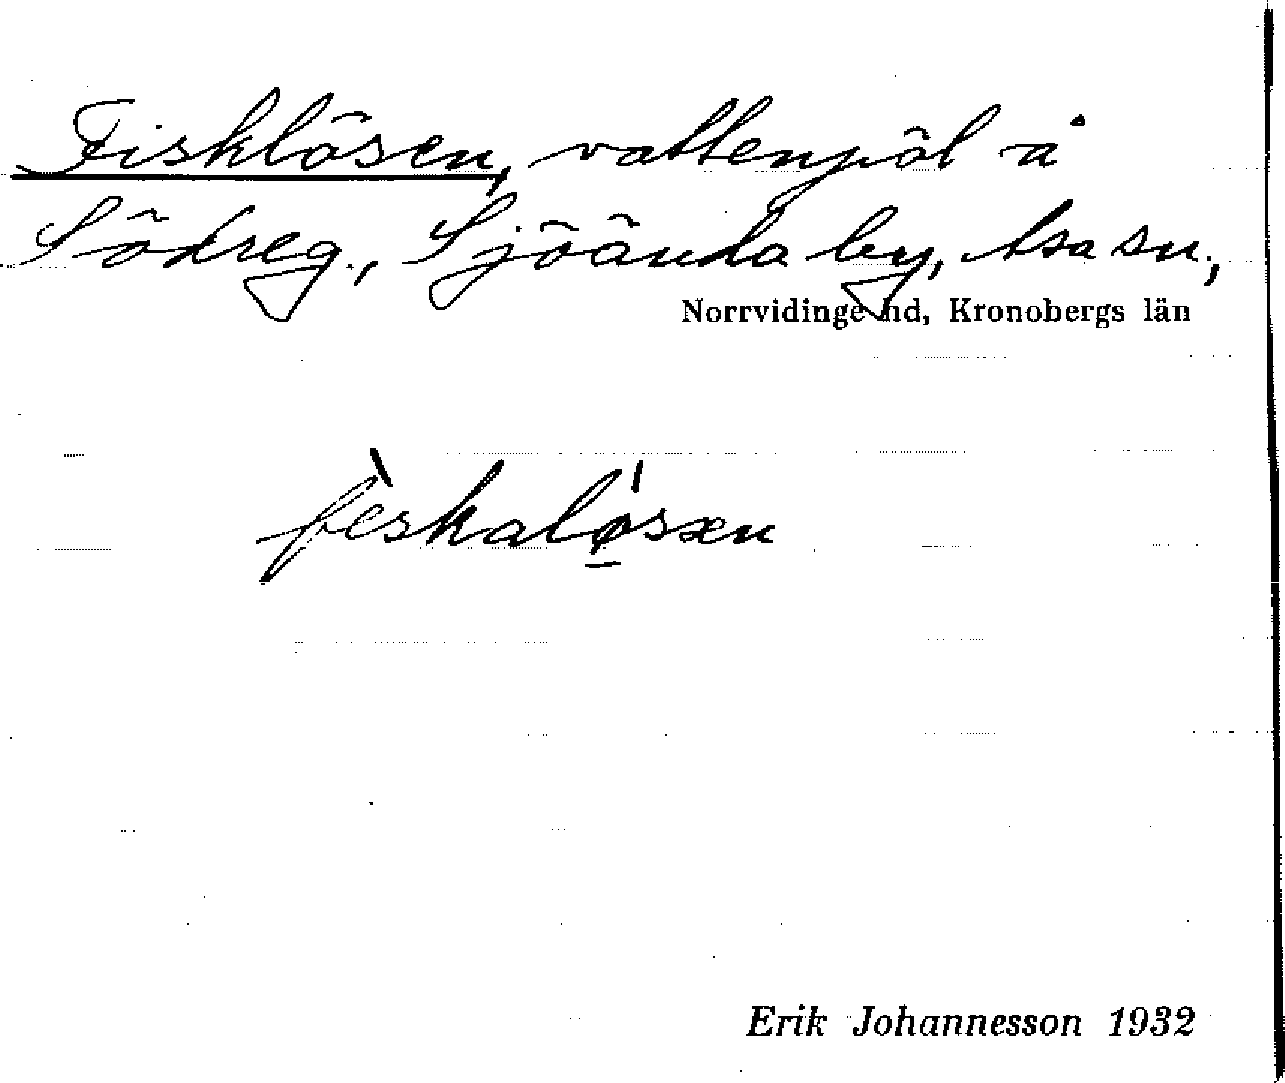 Fisklösen, vattenpöl å
Södreg., Sjöända by, Asa sn.,
Norrvidinge hd, Kronobergs län
fèskalǿ̱sæn
Erik Johannesson 1932